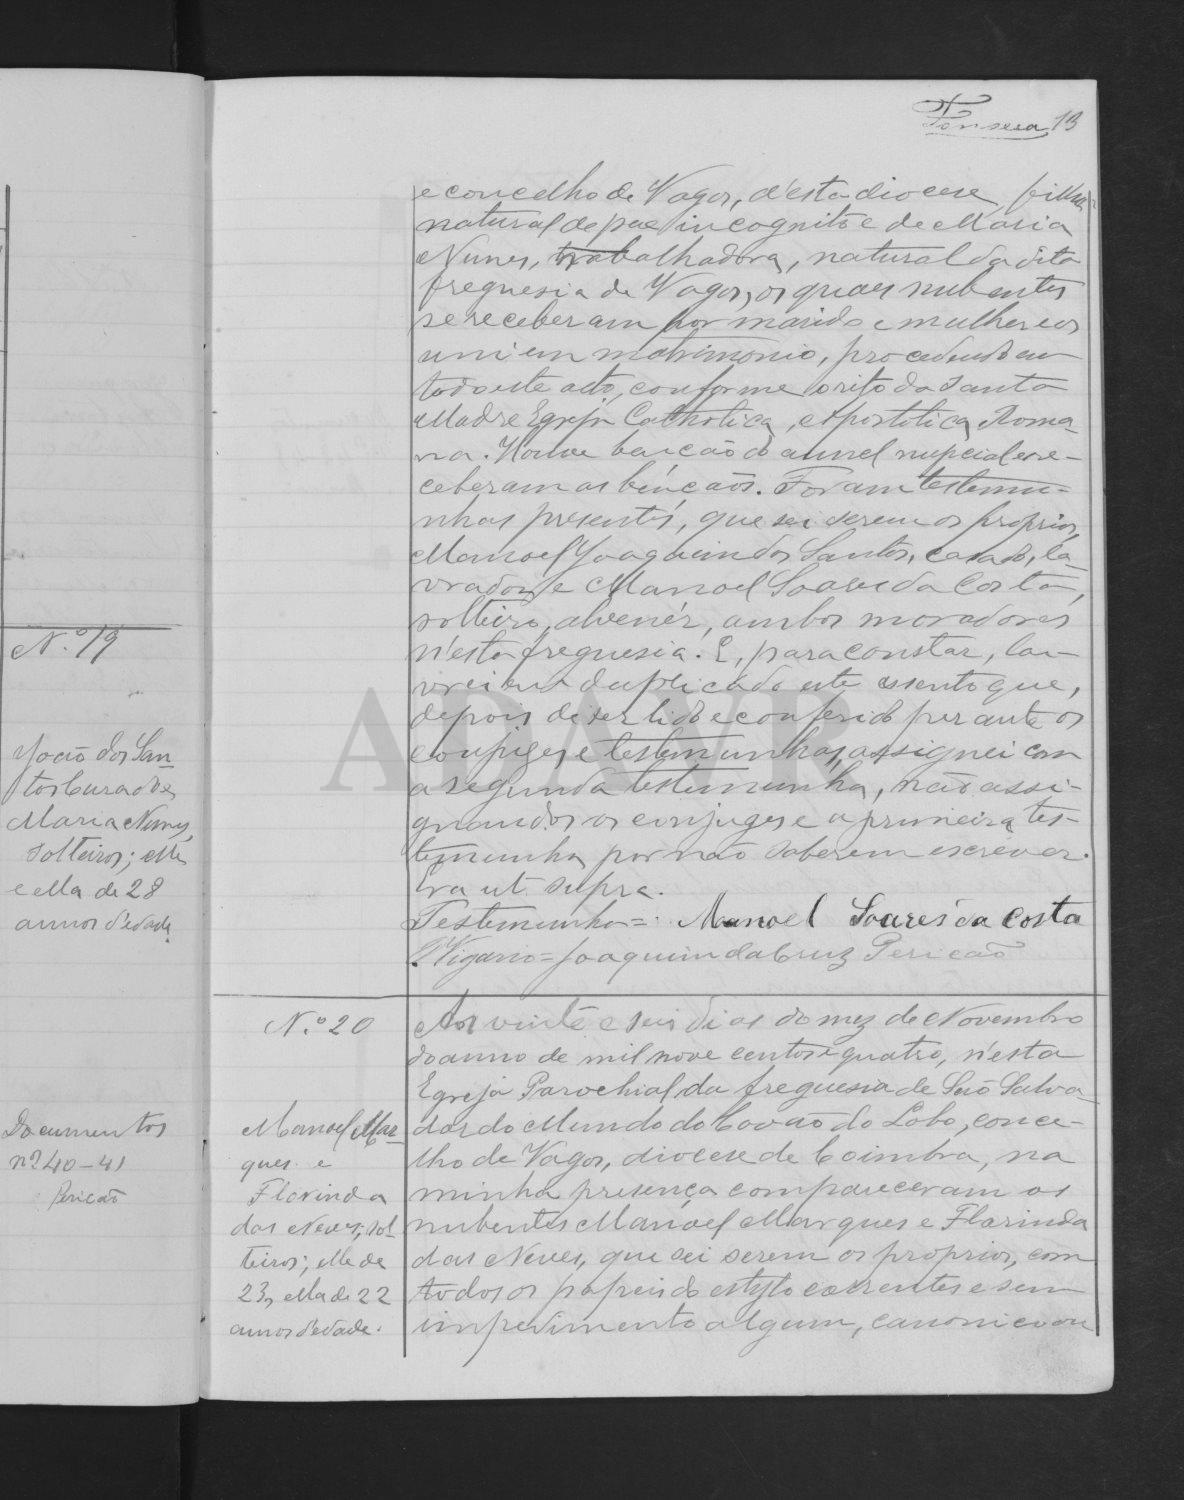 Fonseca 13
e concelho de Vagos, d'esta diocese, filha
natural de pae incognito e de Maria
Nunes, trabalhadora, natural da dita
freguesia de Vagos, os quaes nubentes
se receberam por marido e mulher e os
uni em matrimonio, procedendo em
todo este acto, conforme o rito da Santa
Madre Egreja Catholica, Apostolica Roma-
na. Houve benção do annel nupcial e re-
ceberam as bençãos. Foram testemu-
nhas presentes, que sei serem os proprios,
Manoel Joaquim dos Santos, casado, la-
vrador, e Manoel Soares da Costa,
solteiro, alvenér, ambos moradores
n'esta freguesia. E, para constar, la-
vrei em duplicado este assento que,
depois de ser lido e conferido perante os
conjuges e testemunhas, assignei com
a segunda testemunha, não assi-
gnando os conjuges e a primeira tes-
temunha por não saberem escrever.
Era ut supra.
Testemunha=: Manoel Soares da Costa
O Vigario = Joaquim da Cruz Pericão
N.º 19
João dos San-
tos Curado e
Maria Nunes,
solteiros; elle
e ella de 28
annos d'edade.
Documentos
nº 40-41
Pericão
N.º 20
Manoel Mar-
ques e
Florinda
das Neves; sol-
teiros; elle de
23, ella de 22
annos d'edade.
Aos vinte e seis dias do mez de Novembro
do anno de mil nove centos e quatro, n'esta
Egreja Parochial da freguesia de São Salva-
dor do Mundo do Covão do Lobo, conce-
lho de Vagos, diocese de Coimbra, na
minha presença compareceram os
nubentes Manoel Marques e Florinda
das Neves, que sei serem os proprios, com
todos os papeis do estylo correntes e sem
impedimento algum, canonico ou
ADAVR